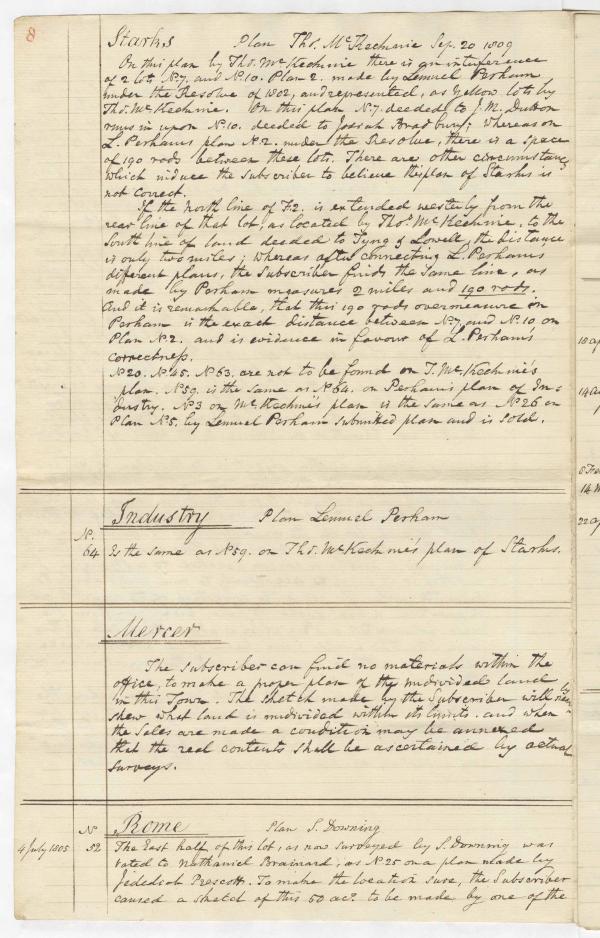 8
Starks Plan Thos. McKechnie Sep. 20 1809
On this plan by Thos. McKechnie there is an interference
of 2 lots No. 7. and No. 10. Plan 2. made by Lemuel Perham
under the Resolve of 1802, and represented, as Yellow lots by
Thos. McKechnie. On this plan No. 7. deeded to J. M. Dutton
runs in upon No. 10. deeded to Josiah Bradbury; whereas on
L. Perham's plan No. 2. under the Resolve, there is a space
of 190 rods between these lots. There are other circumstances
which induce the subscriber to believe this plan of Starks is
not correct.
If the North line of F. 2. is extended westerly from the
rear line of that lot, as located by Thos. McKechnie, to the
South line of land deeded to Tyng & Lowell, the distance
is only two miles; whereas after connecting L. Perham's
different plans, the Subscriber finds the same line, as
made by Perham measures 2 miles and 190 rods.
And it is remarkable, that this 190 rods overmeasure in
Perham is the exact distance between No. 7. and No. 10 on
Plan No. 2. and is evidence in favour of L. Perham's
correctness.
No. 20. No. 45. No. 63. are not to be found on T. McKechnie's
plan. No. 59. is the same as No. 64. on Perham's plan of In=
dustry. No. 3 on McKechnie's plan is the same as No. 26 on
Plan No. 5. by Lemuel Perham submitted plan and is sold.
Industry Plan Lemuel Perham
No.
64 Is the same as No. 59. on Thos. McKechnie's plan of Starks.
Mercer
The subscriber can find no materials within the
office, to make a proper plan of the undivided land
in this Town. The sketch made by the Subscriber will
shew what land is undivided within its limits. and when
the sales are made a condition may be annexed
that the real contents shall be ascertained by actual
surveys.
Rome Plan S. Downing
No
4 July 1805 52 The East half of this lot, as now surveyed by S. Downing was
voted to Nathaniel Brainard, as No. 25 on a plan made by
Jedediah Prescott. To make the location sure, the Subscriber
caused a sketch of this 50 acs. to be made by one of the
10 ap
14 au
14 M
22 ap